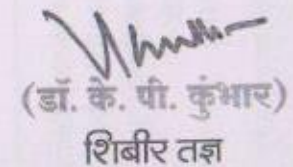 (डॉ. के. पी. कुंभार)
शिबीर तज्ञ